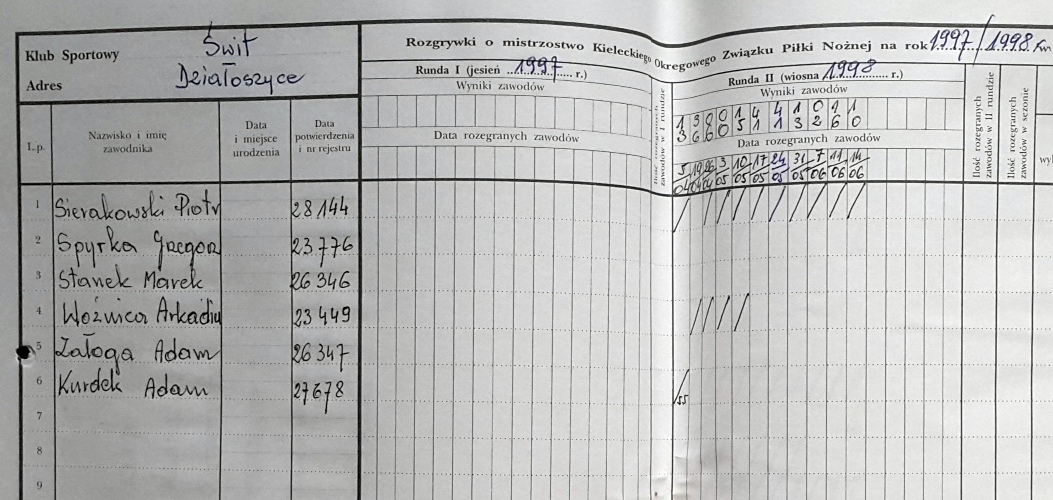 Klub Sportowy Świt
Adres Działoszyce
Rozgrywki o mistrzostwo Kieleckiego Okręgowego Związku Piłki Nożnej na rok 1997/1998
Runda I (jesień 1997 r.)
Runda II (wiosna 1998 r.)
Wyniki zawodów
Wyniki zawodów
1 3 0 0 1 4 4 1 0 1 1
3 6 6 0 5 1 1 3 2 6 0
L.p.
Nazwisko i imię zawodnika
Data i miejsce urodzenia
Data potwierdzenia i nr rejestru
Data rozegranych zawodów
Data rozegranych zawodów
5/04 19/04 26/04 3/05 10/05 17/05 24/05 31/05 7/06 11/06 14/06
Ilość rozegranych zawodów w I rundzie
Ilość rozegranych zawodów w II rundzie
Ilość rozegranych zawodów w sezonie
1 Sierakowski Piotr 28144 / / / / / / / / / /
2 Spyrka Grzegorz 23776
3 Stanek Marek 26346
4 Woźnica Arkadiu 23449 / / / /
5 Załoga Adam 26347
6 Kurdek Adam 27678 /55
7
8
9